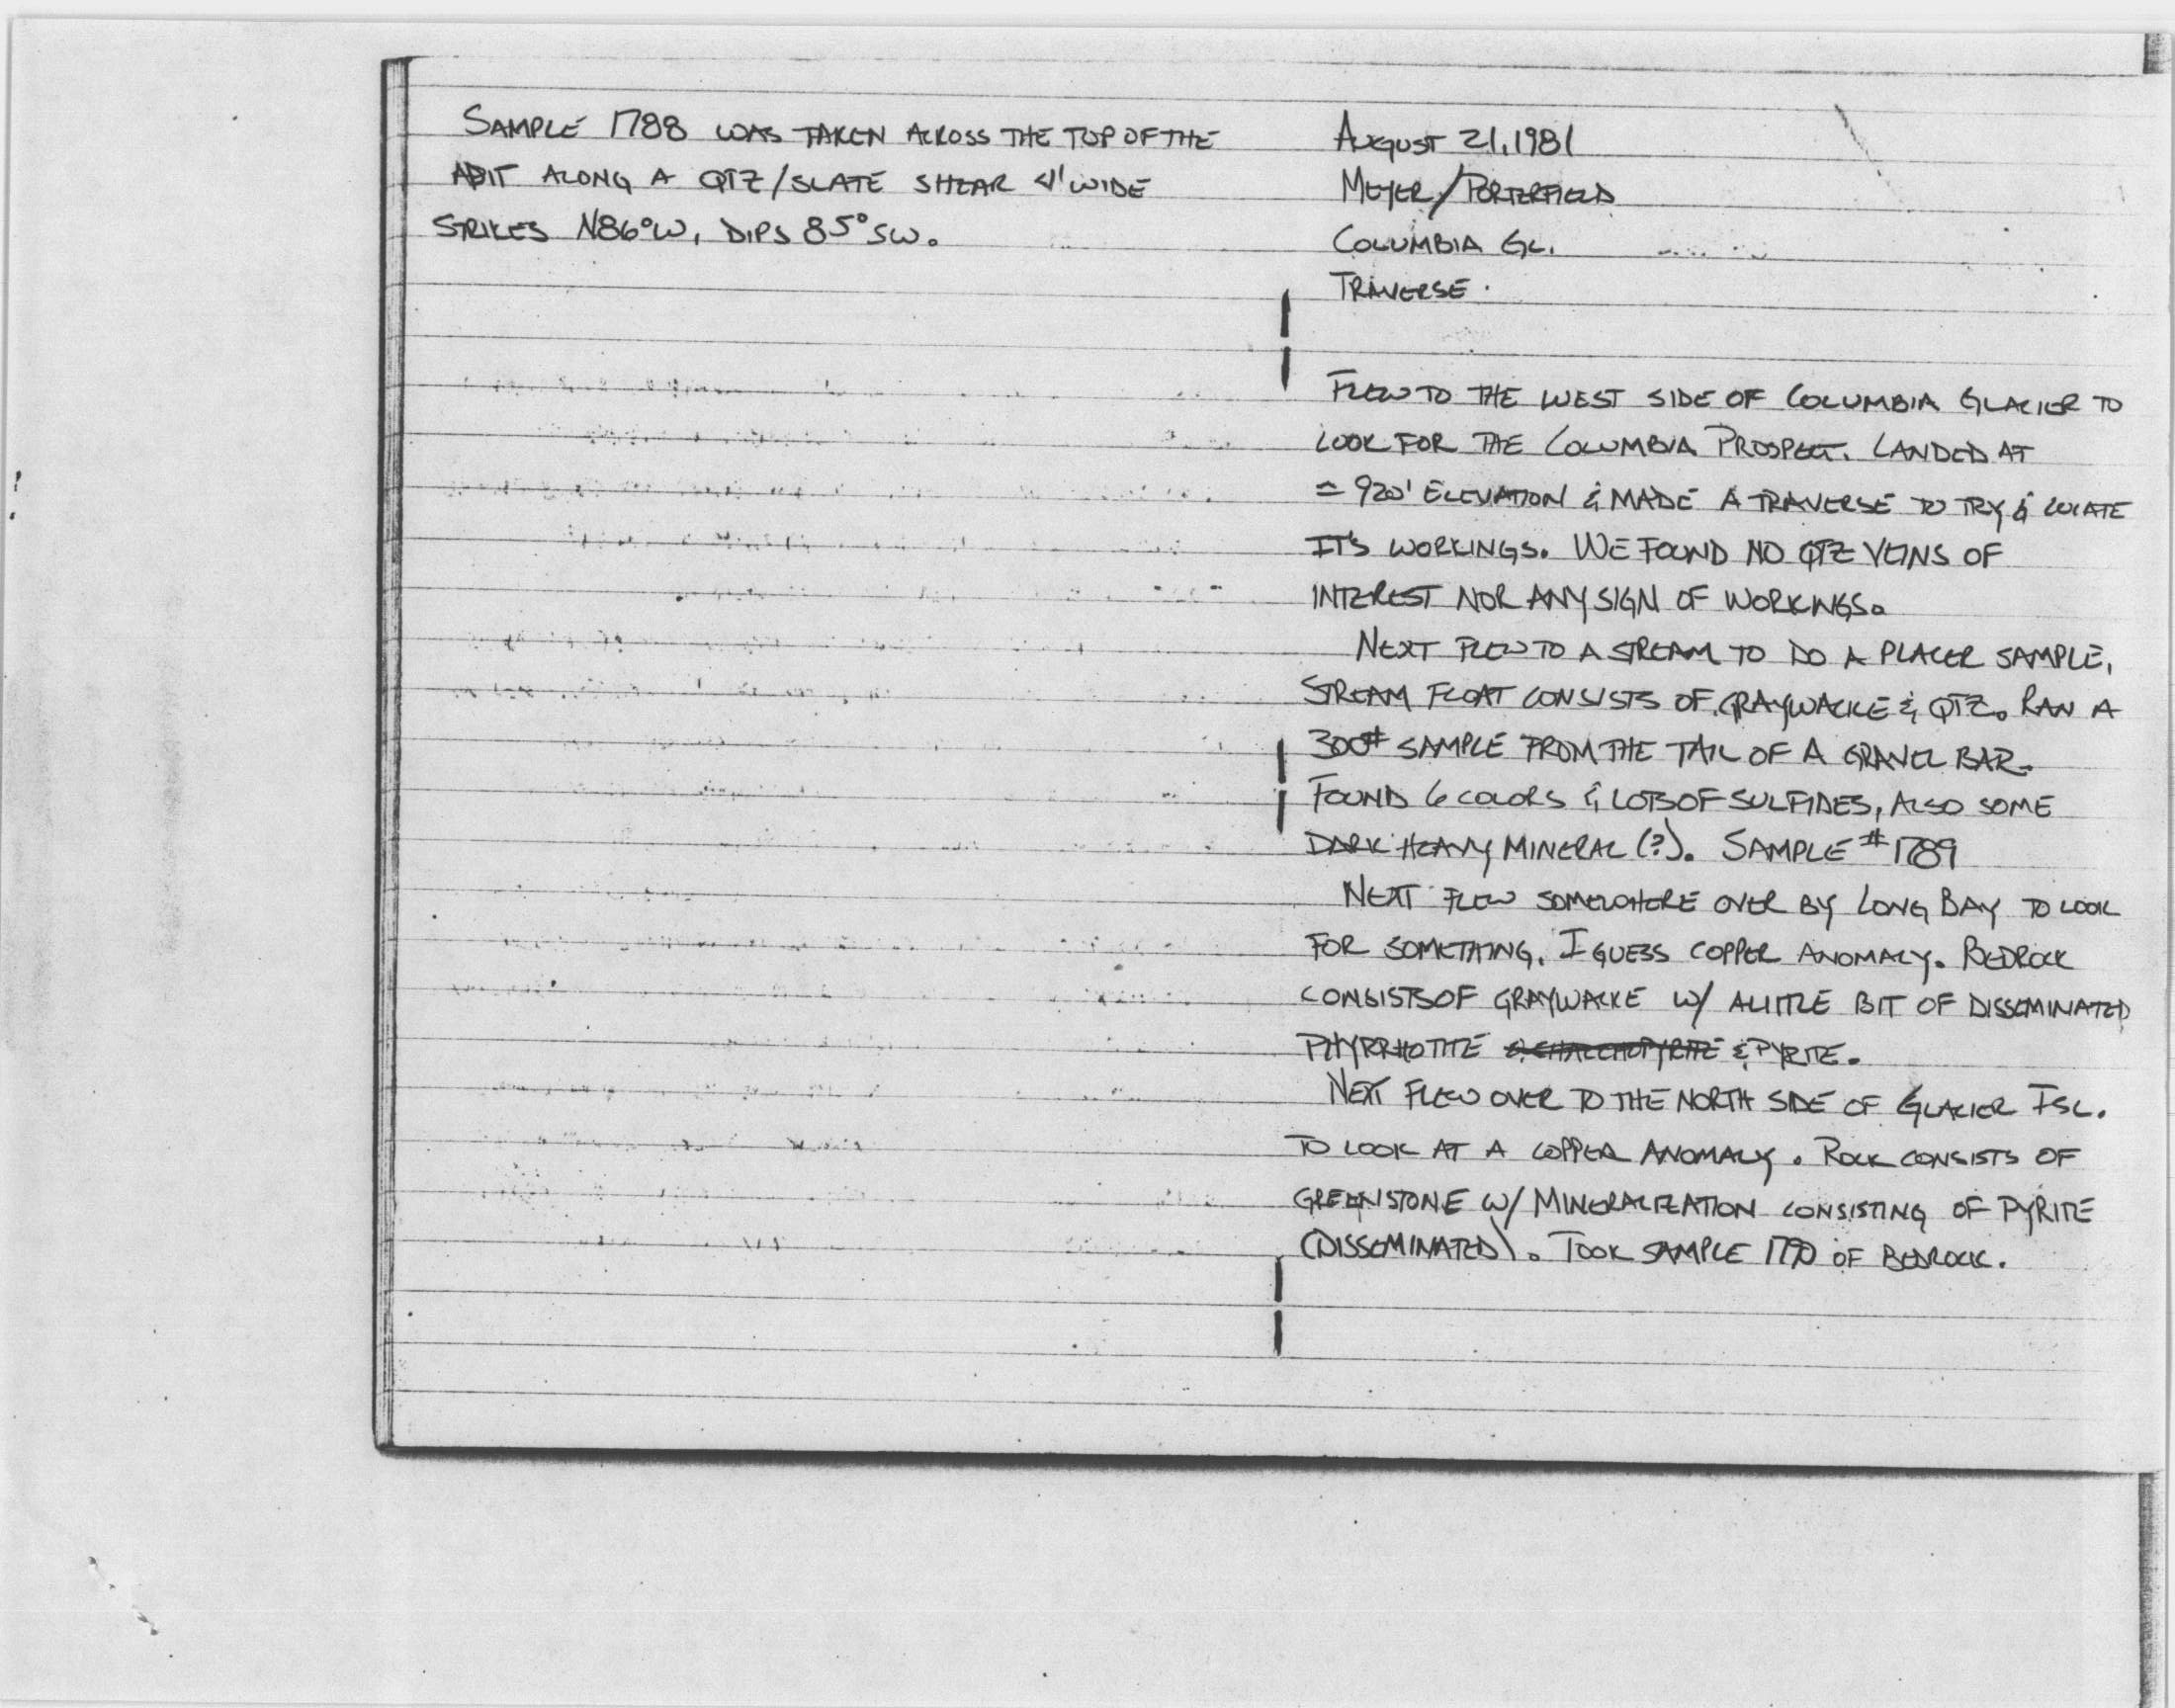 SAMPLE 1788 WAS TAKEN ACROSS THE TOP OF THE
ADIT ALONG A QTZ/SLATE SHEAR <1' WIDE
STRIKES N86°W, DIPS 85°SW.
AUGUST 21, 1981
MEYER/PORTERFIELD
COLUMBIA GL.
TRAVERSE.
FLEW TO THE WEST SIDE OF COLUMBIA GLACIER TO
LOOK FOR THE COLUMBIA PROSPECT. LANDED AT
≈ 920' ELEVATION & MADE A TRAVERSE TO TRY & LOCATE
IT'S WORKINGS. WE FOUND NO QTZ VEINS OF
INTEREST NOR ANY SIGN OF WORKINGS.
NEXT FLEW TO A STREAM TO DO A PLACER SAMPLE,
STREAM FLOAT CONSISTS OF GRAYWACKE & QTZ. RAN A
300# SAMPLE FROM THE TAIL OF A GRAVEL BAR.
FOUND 6 COLORS & LOTS OF SULFIDES, ALSO SOME
DARK HEAVY MINERAL (?). SAMPLE #1789
NEXT FLEW SOMEWHERE OVER BY LONG BAY TO LOOK
FOR SOMETHING. I GUESS COPPER ANOMALY. BEDROCK
CONSISTS OF GRAYWACKE W/ A LITTLE BIT OF DISSEMINATED
PHYRRHOTITE & CHALCHOPYRITE & PYRITE.
NEXT FLEW OVER TO THE NORTH SIDE OF GLACIER ISL.
TO LOOK AT A COPPER ANOMALY. ROCK CONSISTS OF
GREENSTONE W/ MINERALIZATION CONSISTING OF PYRITE
(DISSEMINATED). TOOK SAMPLE 1790 OF BEDROCK.